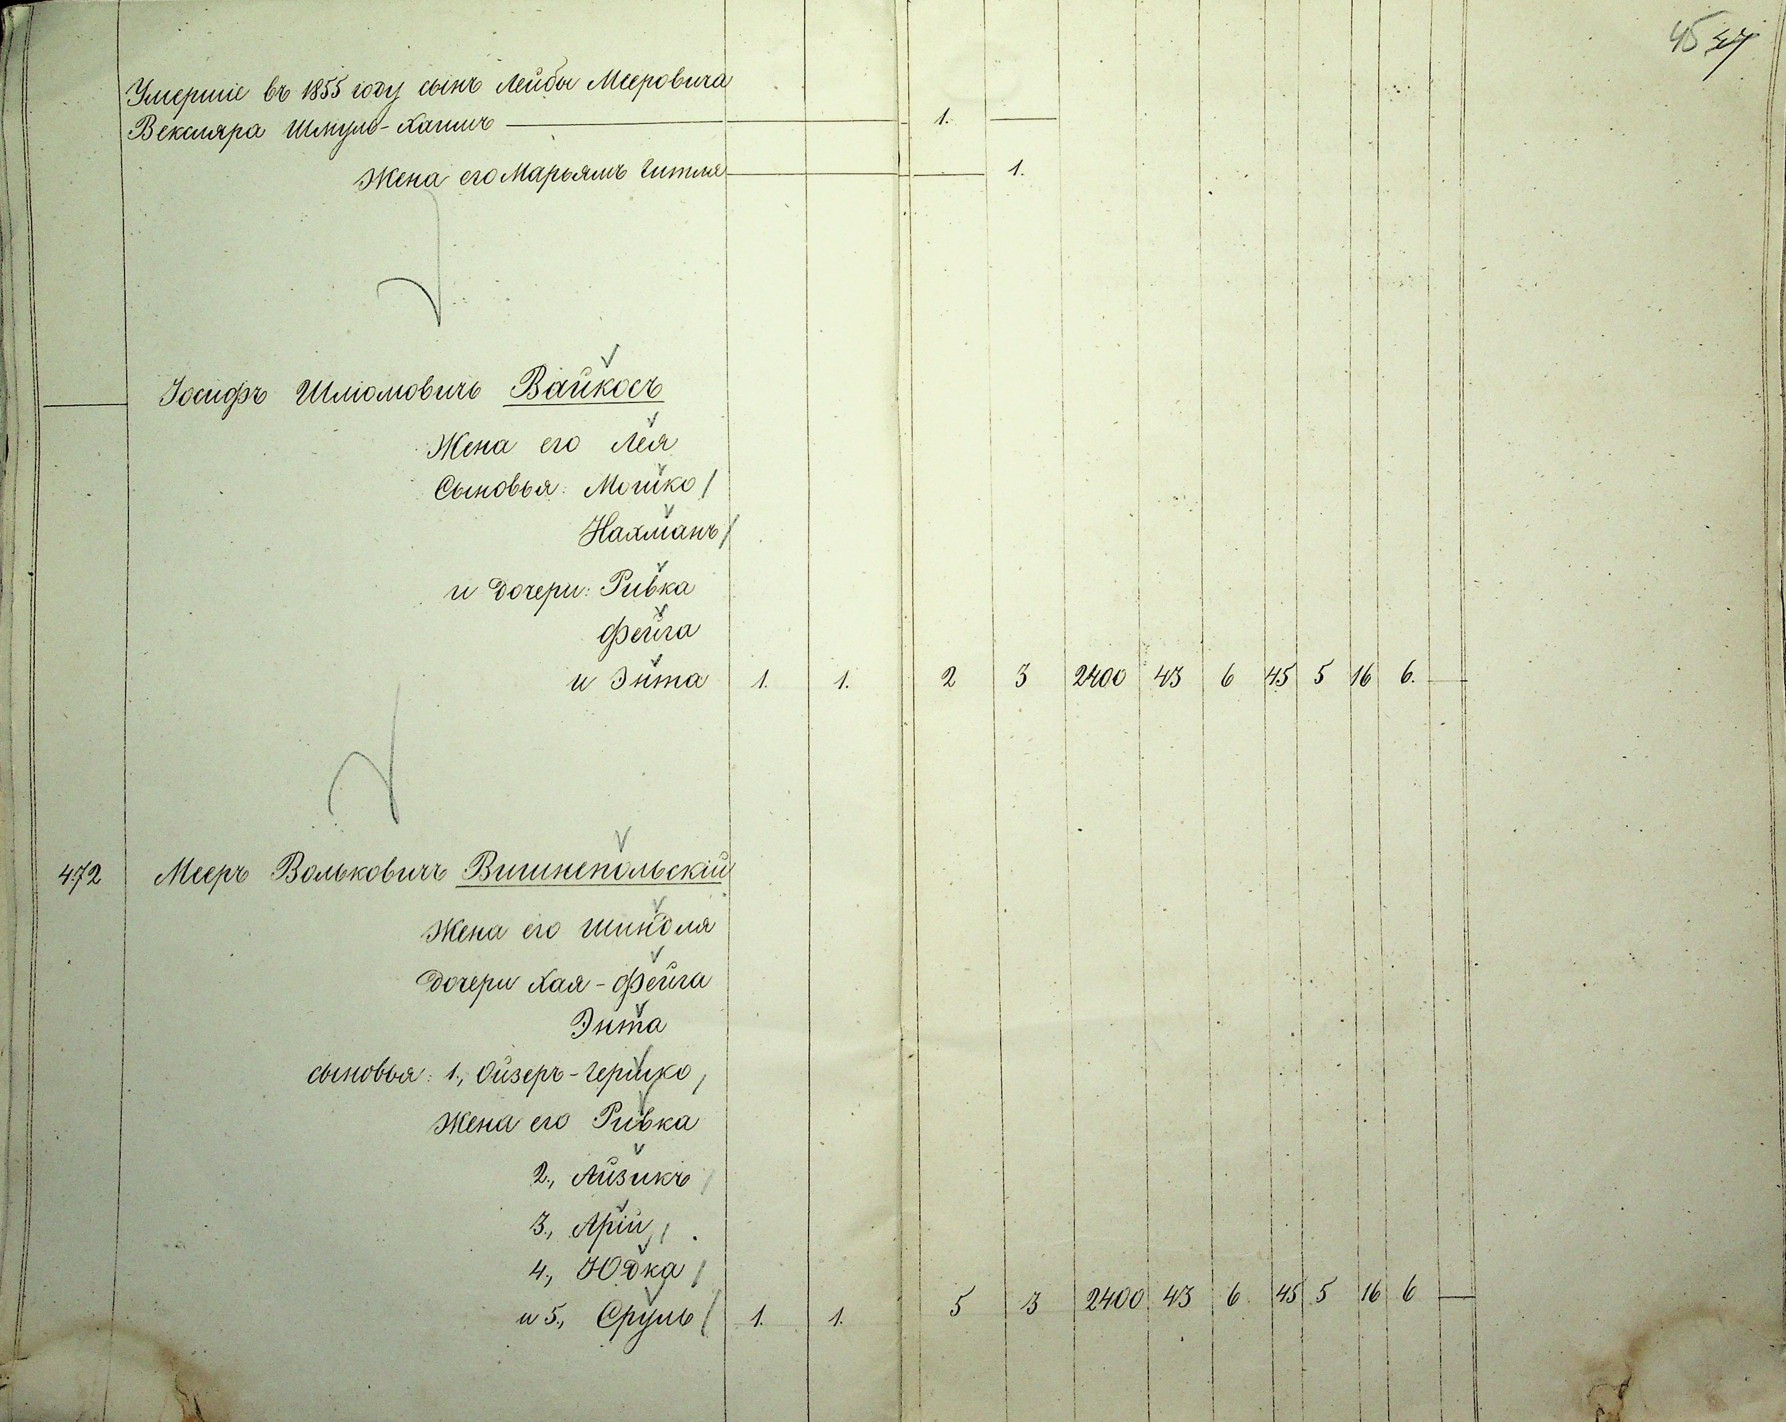 45
Умершіе въ 1855 году сынъ Лейбы Мееровича
Векслера Шмуль-Хаимъ 1.
Жена его Марьямъ Гитля 1.
Іосифъ Шліомовичъ Вайкосъ
Жена его Лея
Сыновья: Мошко
Нахманъ
и Дочери: Ривка
Фейга
и Энта 1. 1. 2 3 2400 43 6 45 5 16 6.
472 Мееръ Вольковичъ Вишнепольскій
Жена его Шиндля
Дочери Хая-Фейга
Энта
сыновья: 1., Ойзеръ-Гершко
Жена его Ривка
2., Айзикъ
3., Арій
4., Юдка
и 5., Сруль 1. 1. 5 3 2400 43 6 45 5 16 6